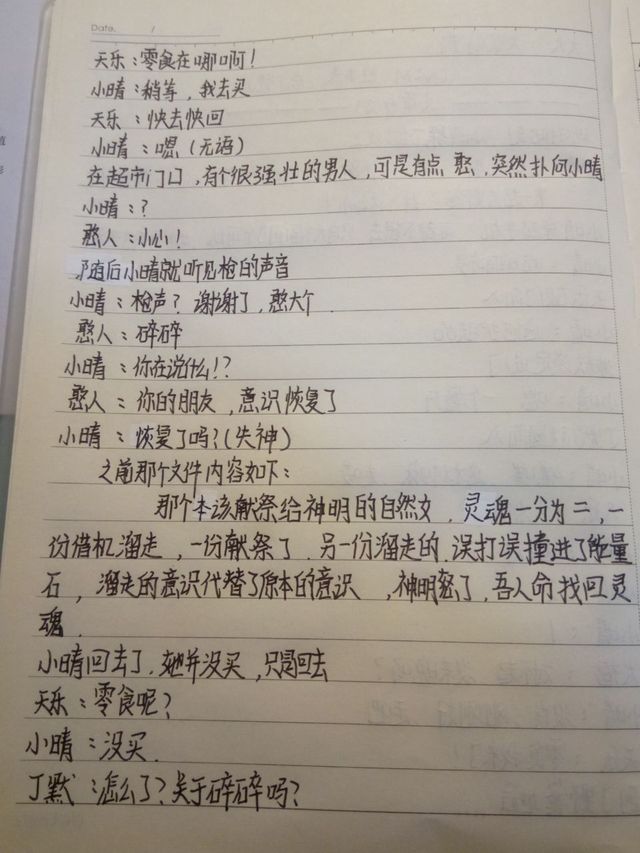 Date. /
天乐：零食在哪啊！
小晴：稍等，我去买
天乐：快去快回
小晴：嗯（无语）
在超市门口，有个很强壮的男人，可是有点憨，突然扑向小晴
小晴：？
憨人：小心！
随后小晴就听见枪的声音
小晴：枪声？谢谢了，憨大个.
憨人：碎碎
小晴：你在说什么！？
憨人：你的朋友，意识恢复了
小晴：恢复了吗？（失神）
之前那个文件内容如下：
那个本该献祭给神明的自然女，灵魂一分为二，一
份借机溜走，一份献祭了.另一份溜走的，误打误撞进了能量
石，溜走的意识代替了原本的意识，神明怒了，吾人命找回灵
魂.
小晴回去了，她并没买，只是回去
天乐：零食呢？
小晴：没买.
丁默：怎么了？关于碎碎吗？